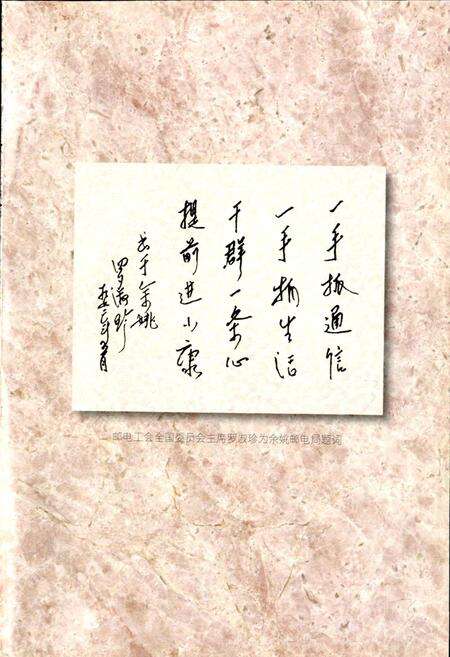 一手抓通信
一手抓生活
干群一条心
提前进小康
书于余姚
罗淑珍
邮电工会全国委员会主席罗淑珍为余姚邮电局题词